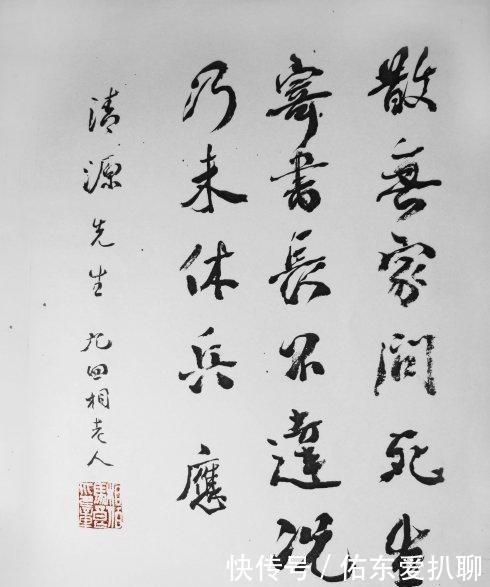 散無家問死生
寄書長不達況
乃未休兵 應
清源先生 无四相老人
快传号 / 佑东爱扒聊